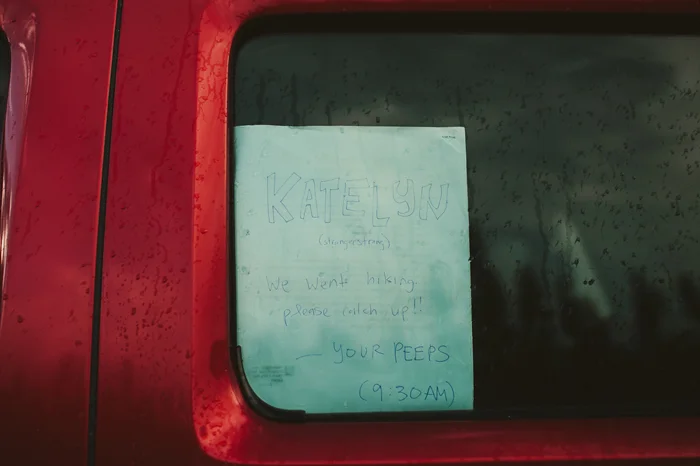 KATELYN
(strangerstrang)
We went hiking
please catch up!!
— YOUR PEEPS
(9:30AM)